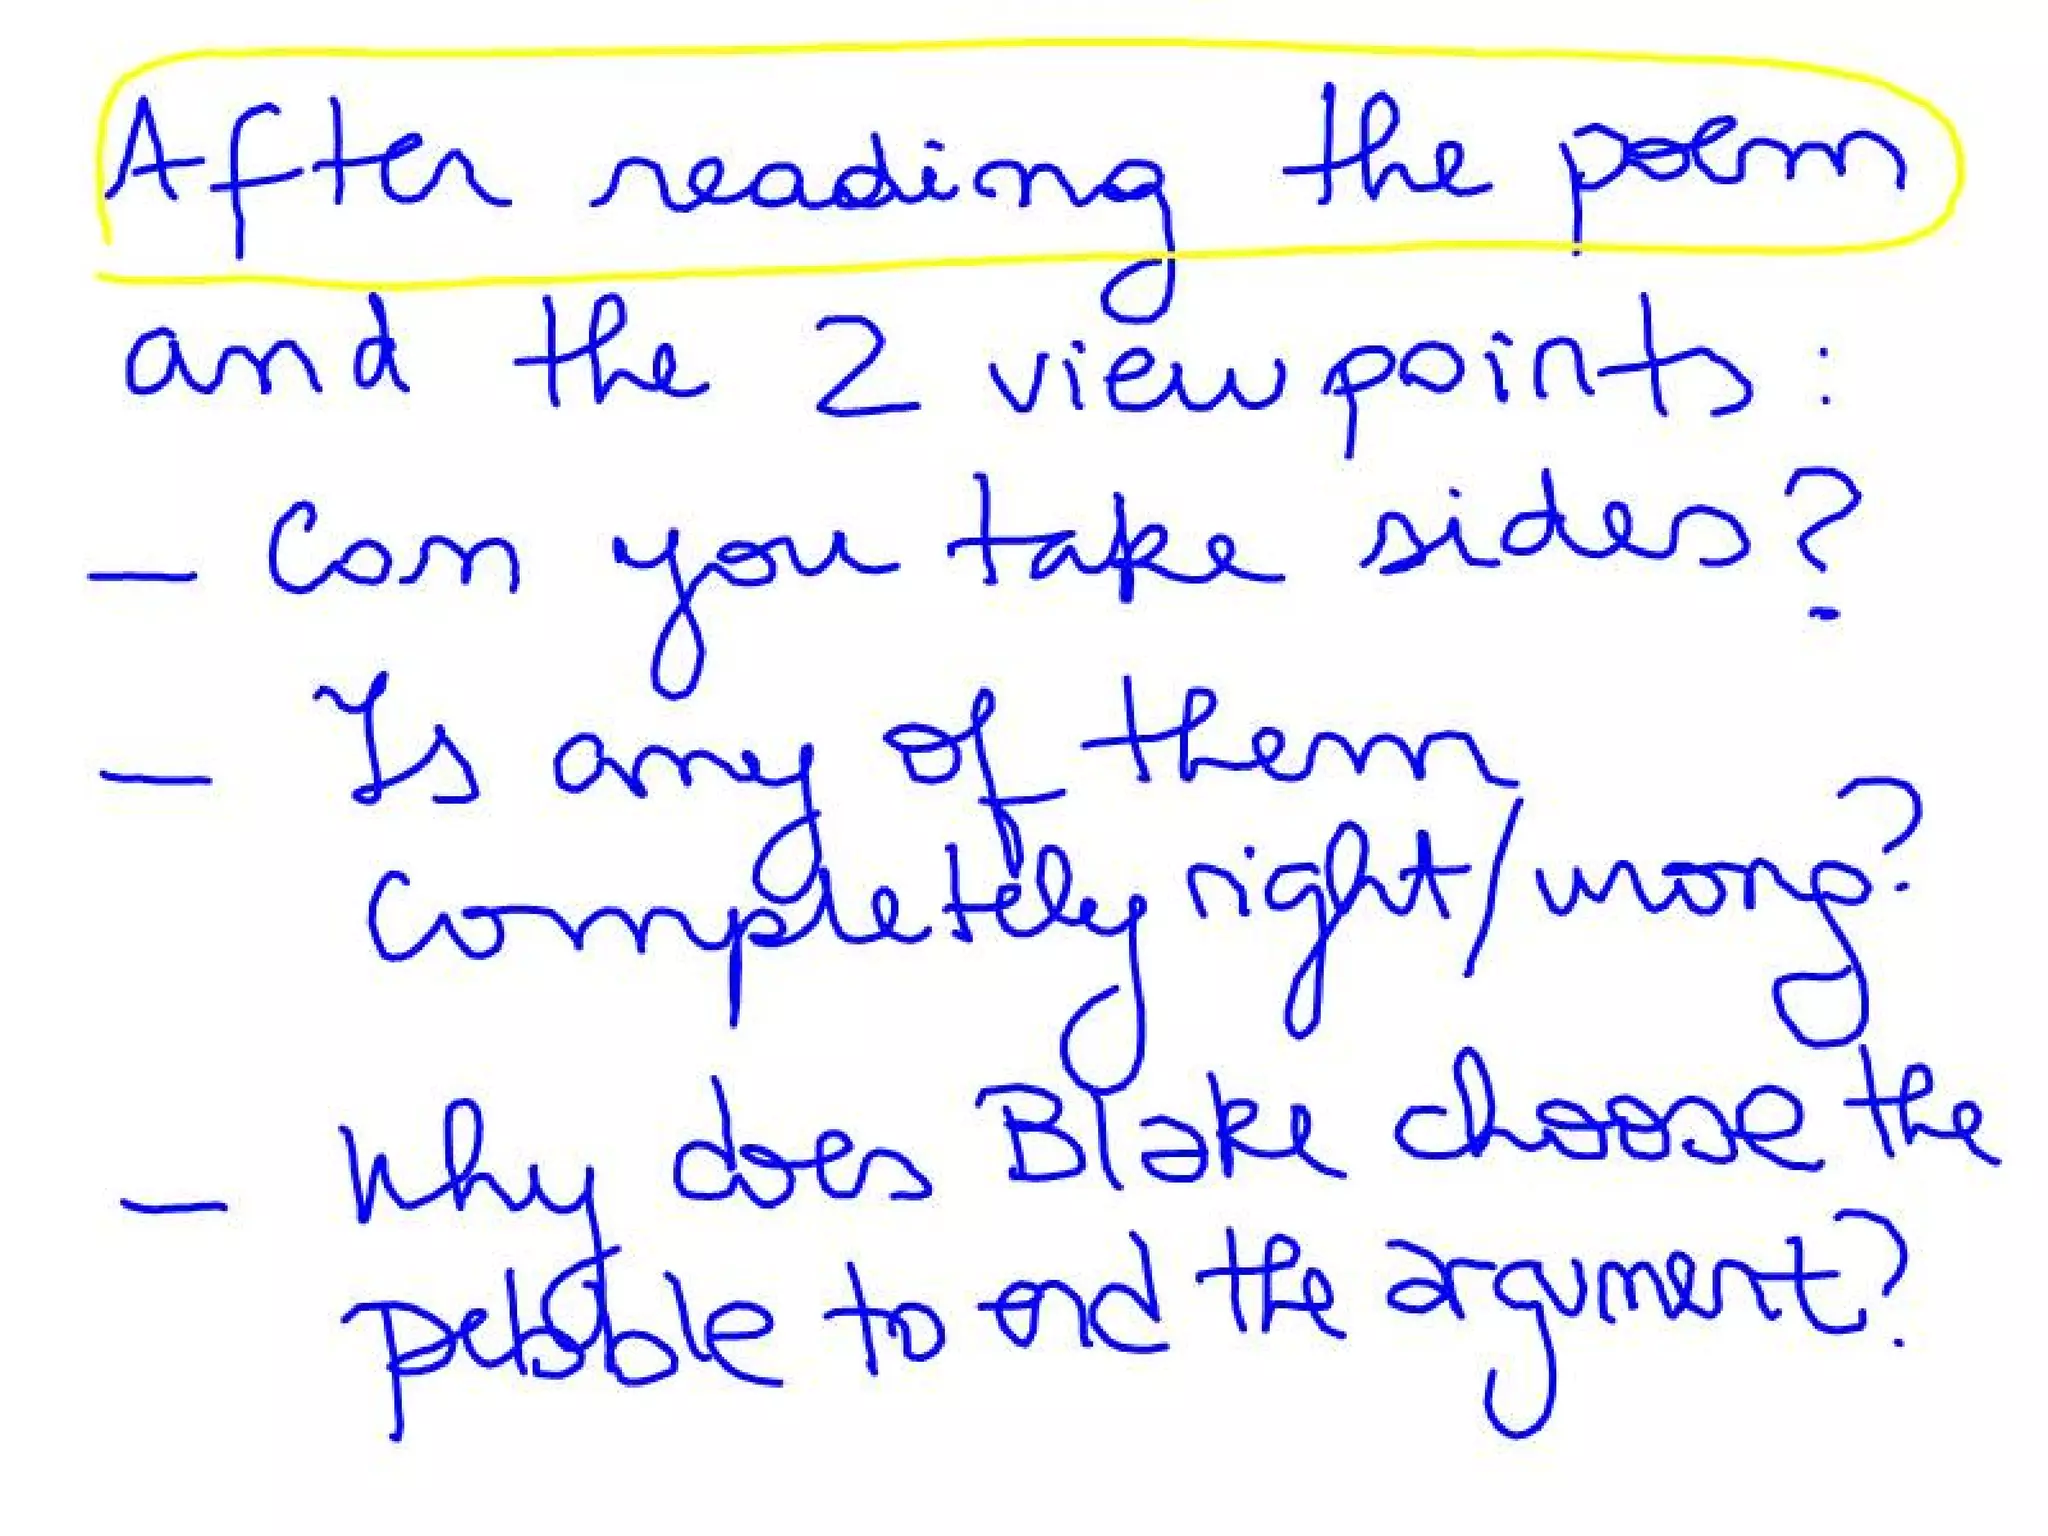 After reading the poem
and the 2 viewpoints:
- Can you take sides?
- Is any of them
completely right/wrong?
- Why does Blake choose the
pebble to end the argument?